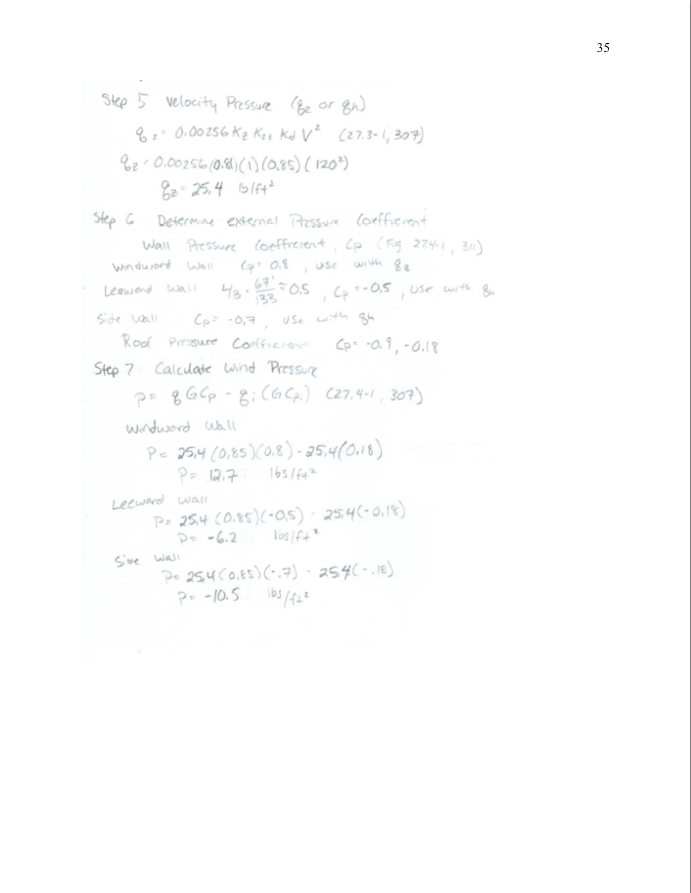 35
Step 5 Velocity Pressure (qz or qh)
qz = 0.00256 Kz Kzt Kd V² (27.3-1, 307)
qz = 0.00256 (0.81)(1)(0.85)(120²)
qz = 25.4 lb/ft²
Step 6 Determine external Pressure Coefficient
Wall Pressure Coefficient, Cp (Fig 27.4-1, 311)
Windward Wall Cp = 0.8, use with qz
Leeward Wall L/B = 67'/133' = 0.5, Cp = -0.5, use with qh
Side Wall Cp = -0.7, use with qh
Roof Pressure Coefficient Cp = -0.9, -0.18
Step 7 Calculate Wind Pressure
P = qGCp - qi(GCpi) (27.4-1, 307)
Windward Wall
P = 25.4 (0.85)(0.8) - 25.4(0.18)
P = 12.7 lbs/ft²
Leeward Wall
P = 25.4 (0.85)(-0.5) - 25.4(-0.18)
P = -6.2 lbs/ft²
Side Wall
P = 25.4(0.85)(-.7) - 25.4(-.18)
P = -10.5 lbs/ft²